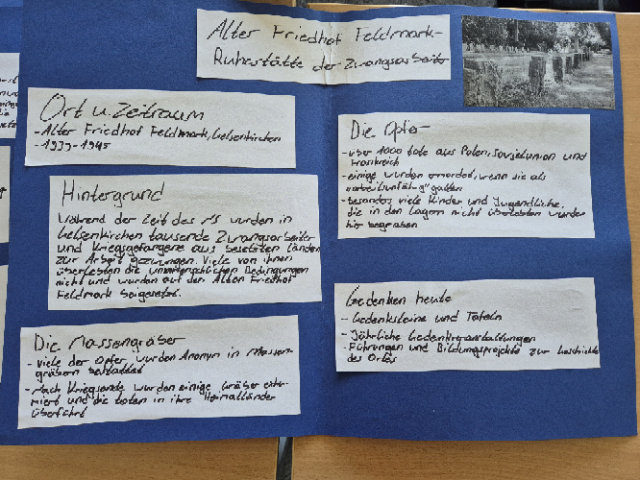 Alter Friedhof Feldmark-
Ruhestätte der Zwangsarbeiter
Ort u. Zeitraum
- Alter Friedhof Feldmark, Gelsenkirchen
- 1939-1945
Hintergrund
Während der Zeit des NS wurden in
Gelsenkirchen tausende Zwangsarbeiter
und Kriegsgefangene aus besetzten Ländern
zur Arbeit gezwungen. Viele von ihnen
überlebten die unmenschlichen Bedingungen
nicht und wurden auf den Alten Friedhof
Feldmark beigesetzt.
Die Massengräber
- viele der Opfer wurden Anonym in Massen-
gräbern
- Nach Kriegsende wurden einige Gräber exhu-
miert und die toten in ihre Heimatländer
überführt
Die Opfer
- über 1000 tote aus Polen, Sovjetunion und
Frankreich
- einige wurden ermordet, wenn sie als
galten
- besonders viele Kinder und Jugendliche,
die in den Lagern nicht überlebten wurden
hier begraben
Gedenken heute
- Gedenksteine und Tafeln
- Jährliche Gedenkveranstaltungen
- Führungen und Bildungsprojekte zur Geschichte
des Ortes